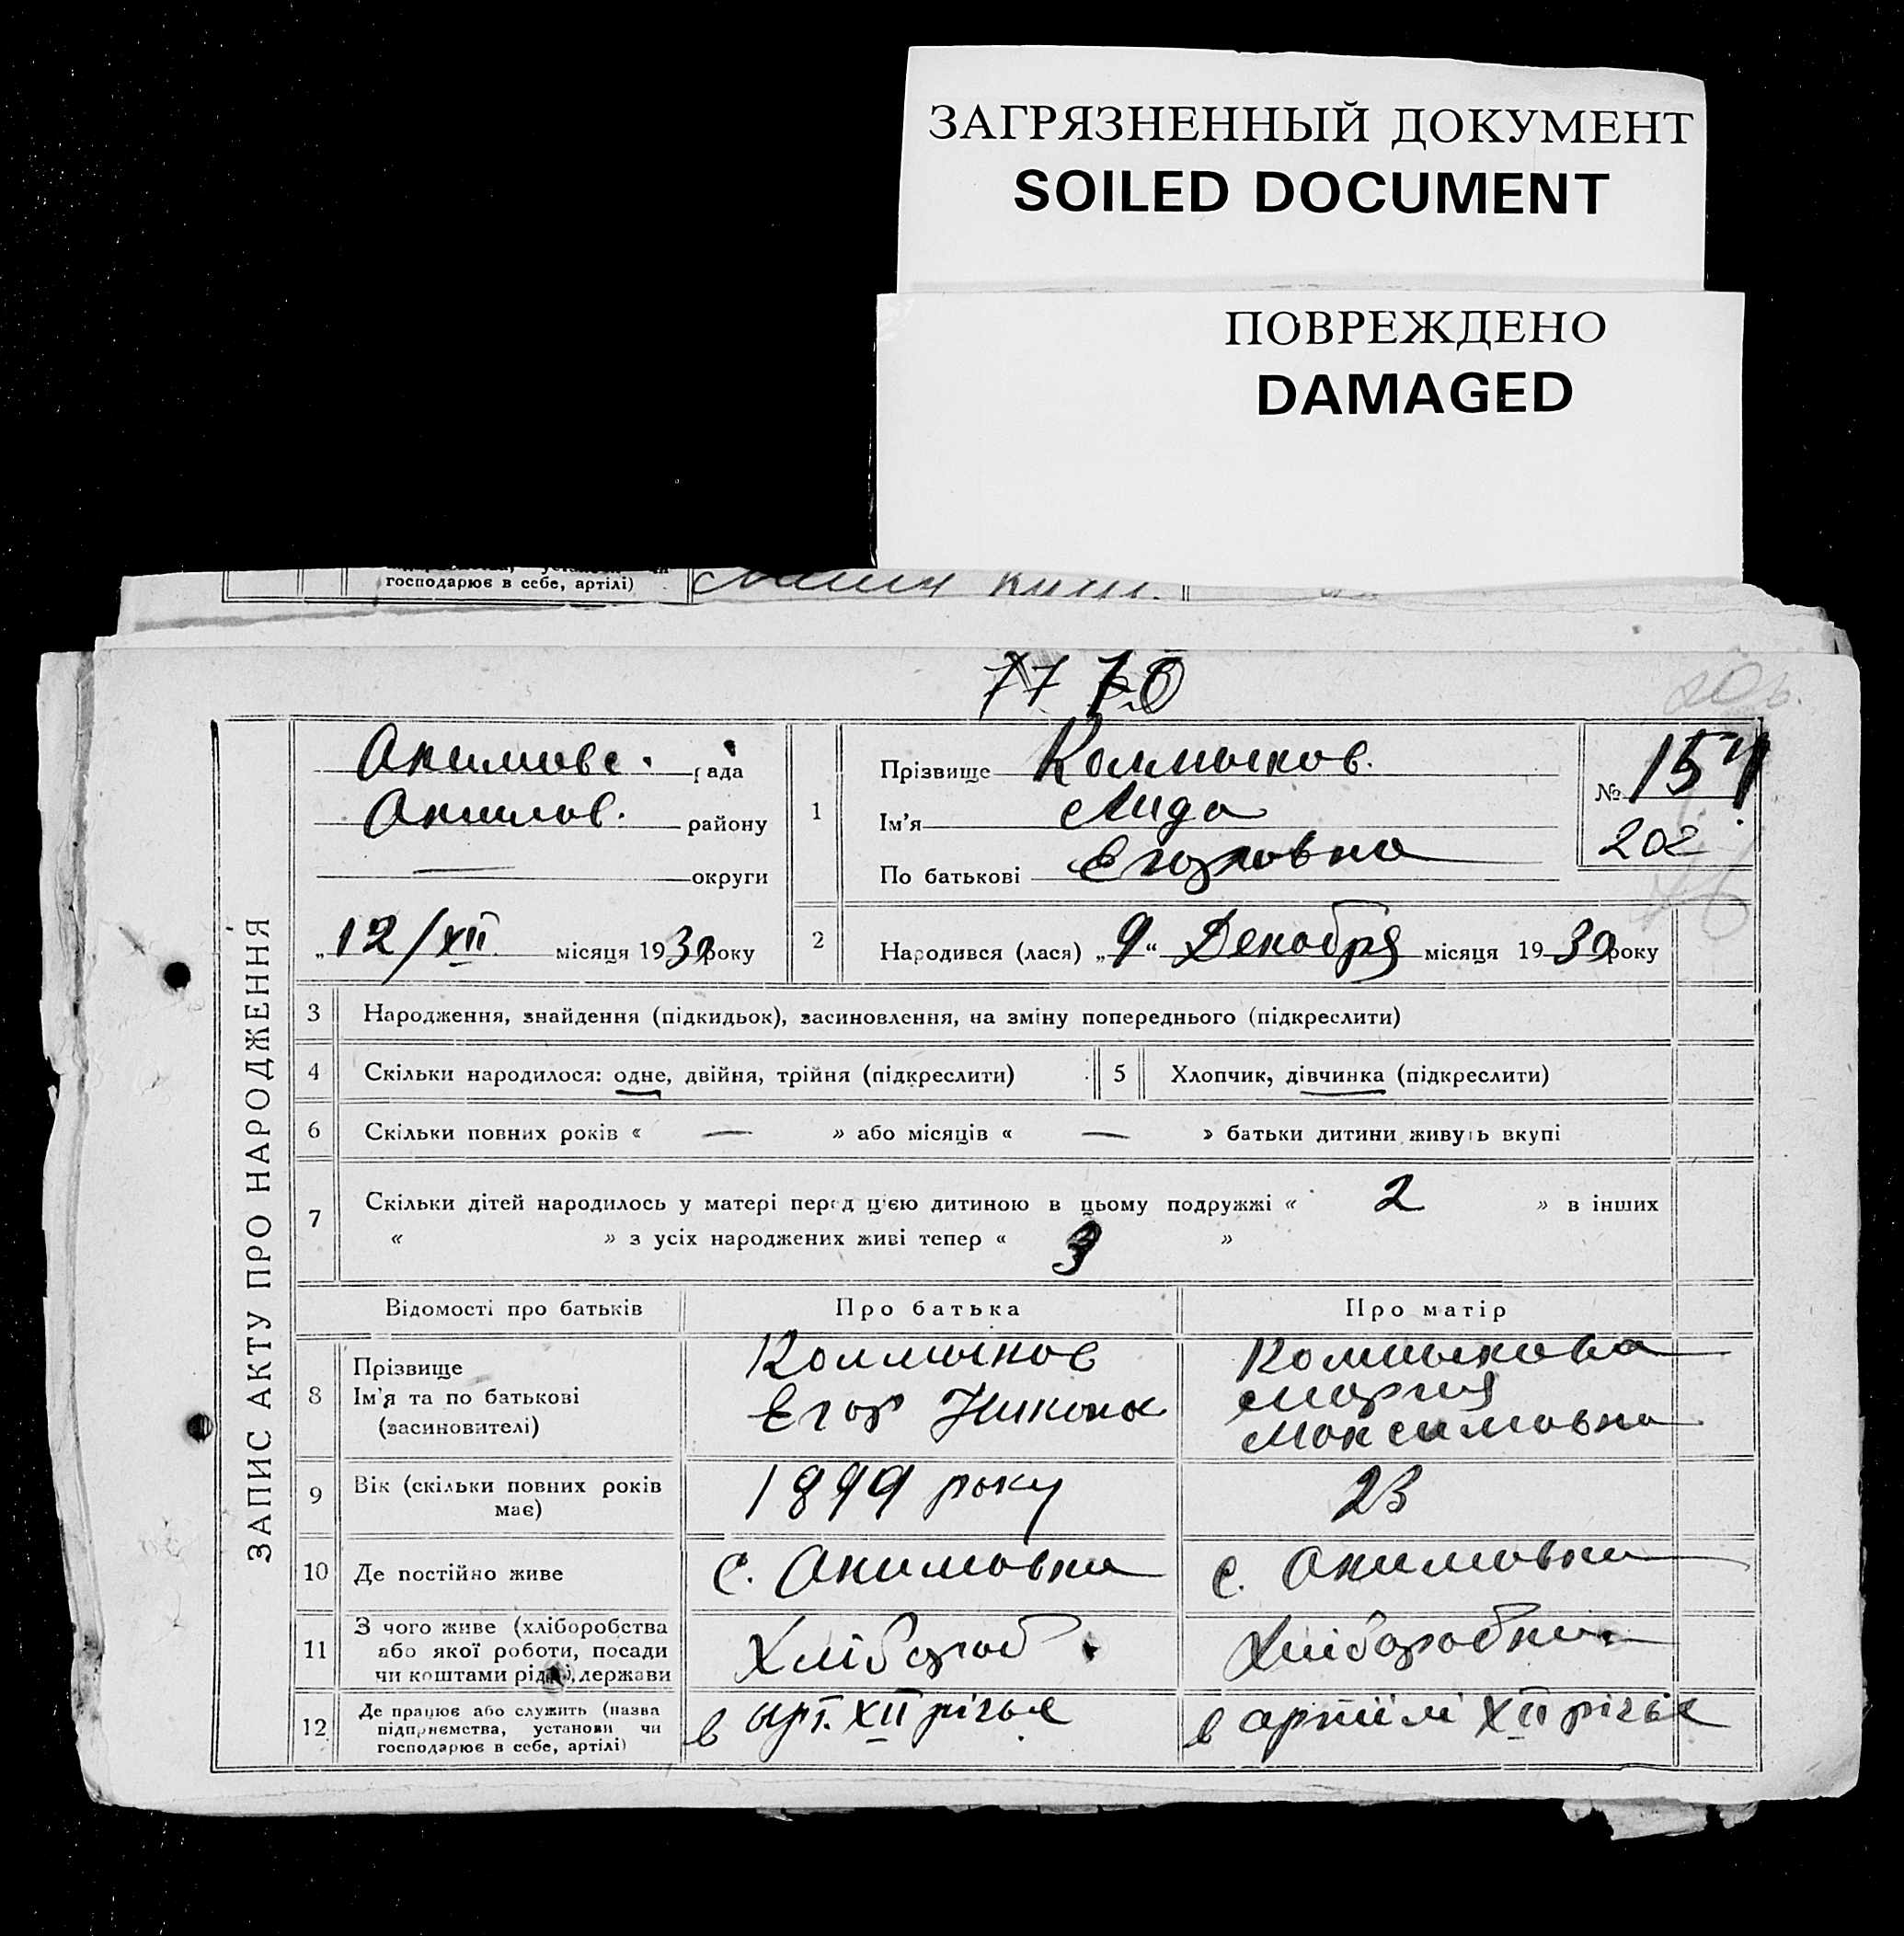 ЗАГРЯЗНЕННЫЙ ДОКУМЕНТ
SOILED DOCUMENT
ПОВРЕЖДЕНО
DAMAGED
господарює в себе, артілі)
77
ЗАПИС АКТУ ПРО НАРОДЖЕННЯ
Акимовс. рада
Акимов. району
— округи
„12/XII місяця 1930 року
1
Прізвище Колмыков.
Ім'я Лида
По батькові Егоровна
№ 154
202
2 Народився (лася) „9“ Декабря місяця 1930 року
3 Народження, знайдення (підкидьок), засиновлення, на зміну попереднього (підкреслити)
4 Скільки народилося: одне, двійня, трійня (підкреслити) 5 Хлопчик, дівчинка (підкреслити)
6 Скільки повних років « — » або місяців « — » батьки дитини живуть вкупі
7 Скільки дітей народилось у матері перед цією дитиною в цьому подружжі « 2 » в інших
« » з усіх народжених живі тепер « 3 »
Відомості про батьків Про батька Про матір
8 Прізвище
Ім'я та по батькові
(засиновителі)
Колмыков
Егор Никона
Колмыкова
Мария
Максимовна
9 Вік (скільки повних років
має)
1899 року
23
10 Де постійно живе с. Акимовка с. Акимовка
11 З чого живе (хліборобства
або якої роботи, посади
чи коштами рідні, держави
Хлібороб
Хліборобка
12 Де працює або служить (назва
підприємства, установи чи
господарює в себе, артілі)
в арт. XII річья
в артілі XII річья